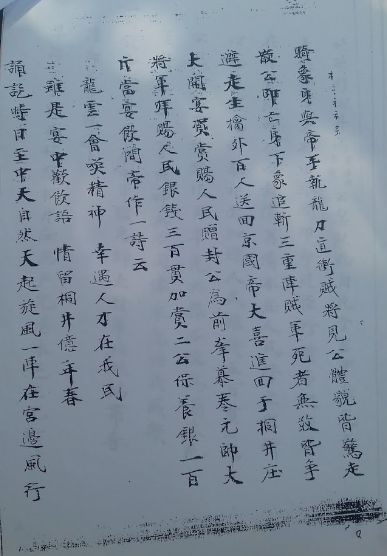 騎象與帝手執龍刀直衝賊將見公體貌皆驚走
散公即亡身下象追斬三重陣賊軍死者無数皆爭
逃走生擒外百人送囬京國帝大喜進囬于桐井庄
大開宴賀賞賜人民贈封公為前峯慕泰元帥大
將軍拜賜人民銀錢三百貫加賞二公保養銀一百
斤當宴飲間帝作一詩云
龍雲一會英精神 幸遇人才在我民
雖是宴中歡飲語 情留桐井億年春
誦訖時日至中天自然天起旋風一陣在宮邊風行